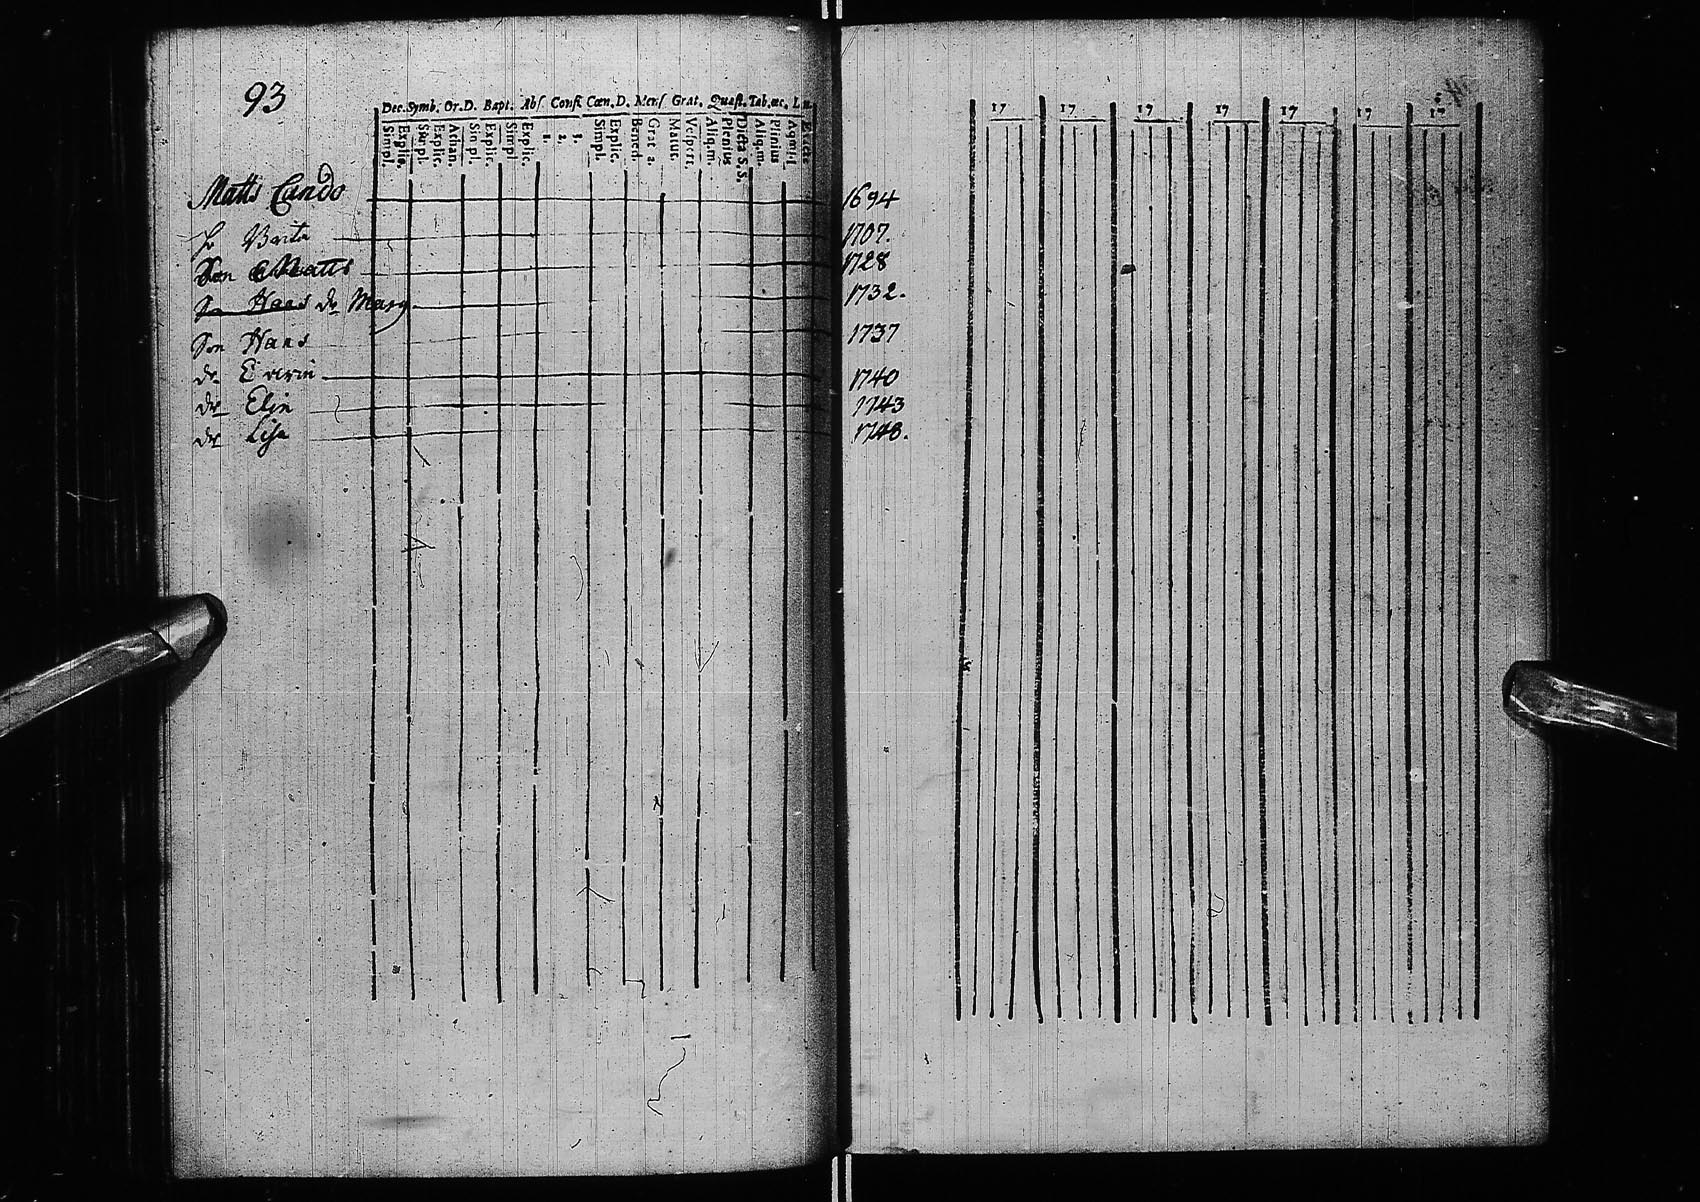 93
Dec. Symb. Or. D. Bapt. Abs. Conf. Cœn. D. Mens. Grat. Quæst. Tab. œc.
Simpl. Explic. Simpl. Explic. Athan. Simpl. Explic. Simpl. Explic. 1. 2. 3. Simpl. Explic. Bened. Grat. a. Matut. Vespert. Aliq.m. Plenius Dicta S.S. Aliq.m. Plenius
17 17 17 17 17 17 17
Matts Cando 1694
h Brita 1707.
Son Matts 1728
Son Haas dr Marg 1732.
Son Hans 1737
dr 1740
dr Elin 1743
dr Lisa 1748.